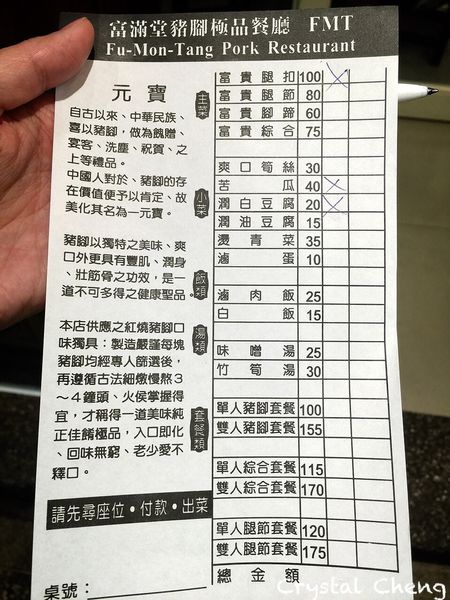 富滿堂豬腳極品餐廳 FMT
Fu-Mon-Tang Pork Restaurant
元寶
自古以來、中華民族、
喜以豬腳，做為餽贈、
宴客、洗塵、祝賀、之
上等禮品。
中國人對於、豬腳的存
在價值便予以肯定、故
美化其名為一元寶。
豬腳以獨特之美味、爽
口外更具有豐肌、潤身
、壯筋骨之功效，是一
道不可多得之健康聖品。
本店供應之紅燒豬腳口
味獨具：製造嚴謹每塊
豬腳均經專人篩選後，
再遵循古法細燉慢熬3
～4鐘頭、火侯掌握得
宜，才稱得一道美味純
正佳餚極品，入口即化
、回味無窮、老少愛不
釋口。
請先尋座位・付款・出菜
桌號：
主菜
富貴腿扣 100
富貴腿節 80
富貴腳蹄 60
富貴綜合 75
小菜
爽口筍絲 30
苦瓜 40
潤白豆腐 20
潤油豆腐 15
燙青菜 35
滷蛋 10
飯類
滷肉飯 25
白飯 15
湯類
味噌湯 25
竹筍湯 30
套餐類
單人豬腳套餐 100
雙人豬腳套餐 155
單人綜合套餐 115
雙人綜合套餐 170
單人腿節套餐 120
雙人腿節套餐 175
總金額
Crystal Cheng